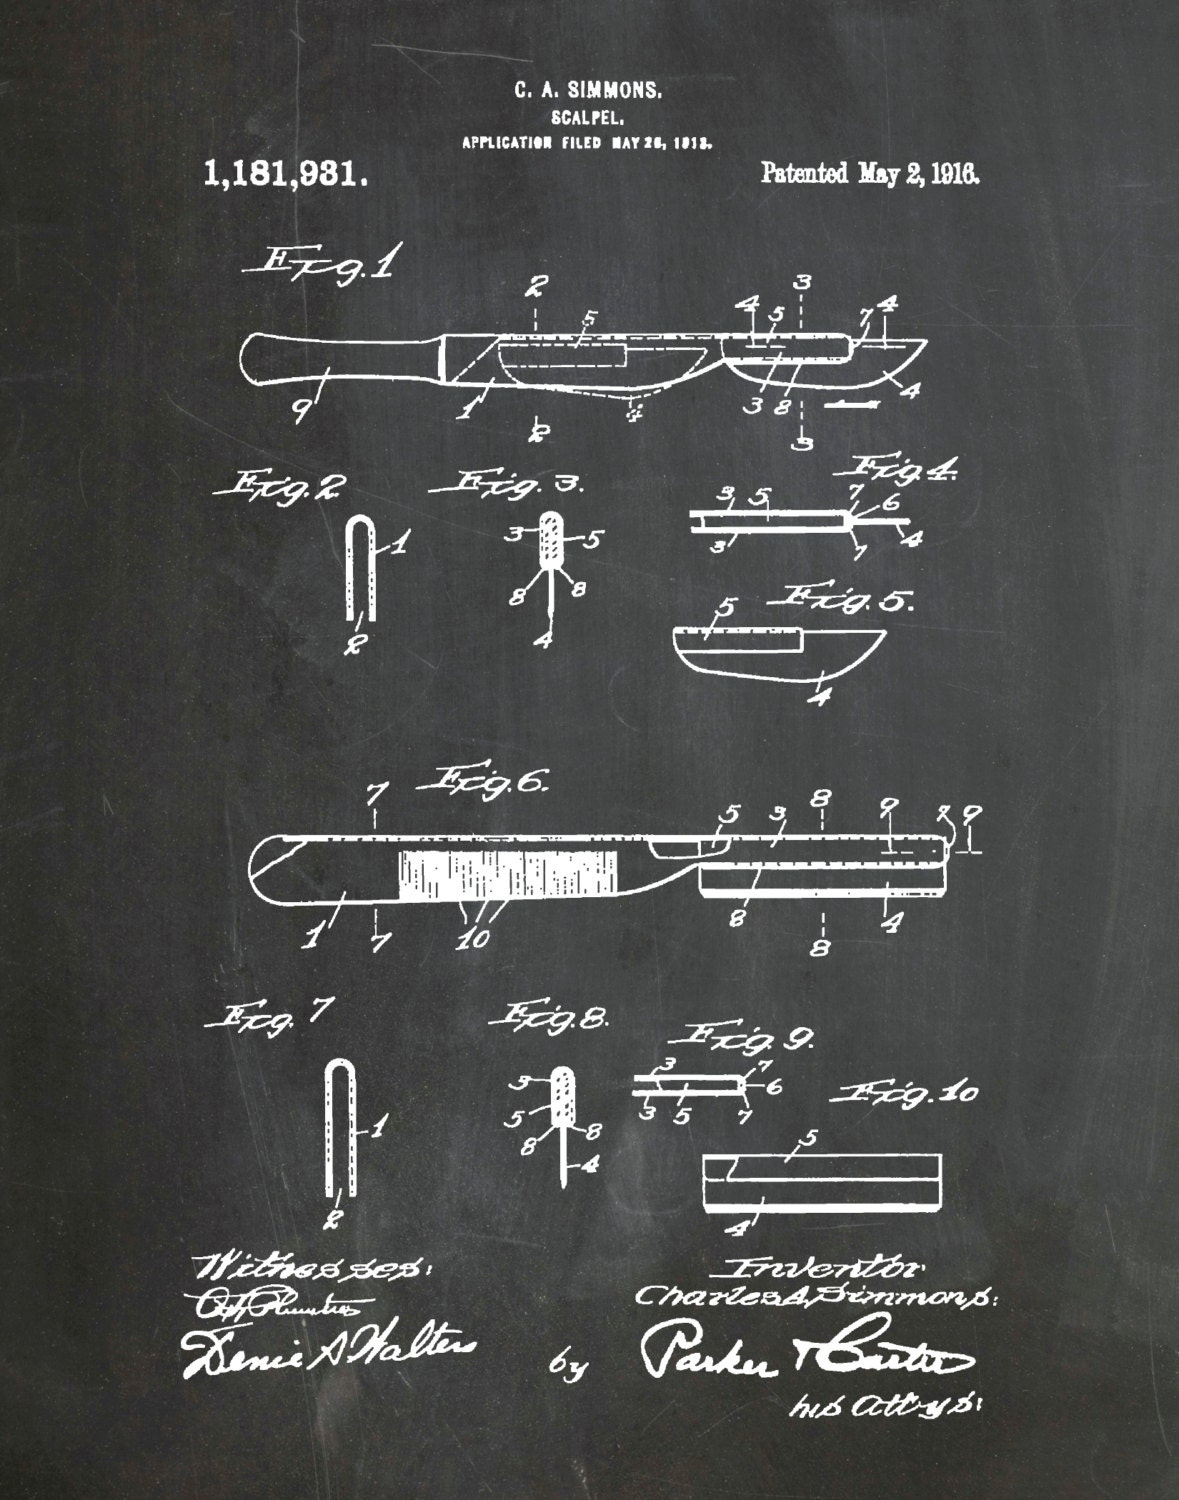 C. A. SIMMONS.
SCALPEL.
APPLICATION FILED MAY 26, 1913.
1,181,931.
Patented May 2, 1916.
Fig. 1
2
3
4 5 7 4
5
9 1 4 3 8 4
2
3
Fig. 2
Fig. 3.
Fig. 4.
1
2
3 5
8 8
4
3 5 7 6
3 7 4
Fig. 5.
5
4
Fig. 6.
7
8
5 3 9 7 9
1 7 10 8 4
8
Fig. 7
Fig. 8.
Fig. 9.
Fig. 10
1
2
3
5
8 8
4
3 7
6
3 5 7
5
4
Witnesses:
Denie A Walters
Inventor
Charles A. Simmons:
by Parker & Carter
his Attys: